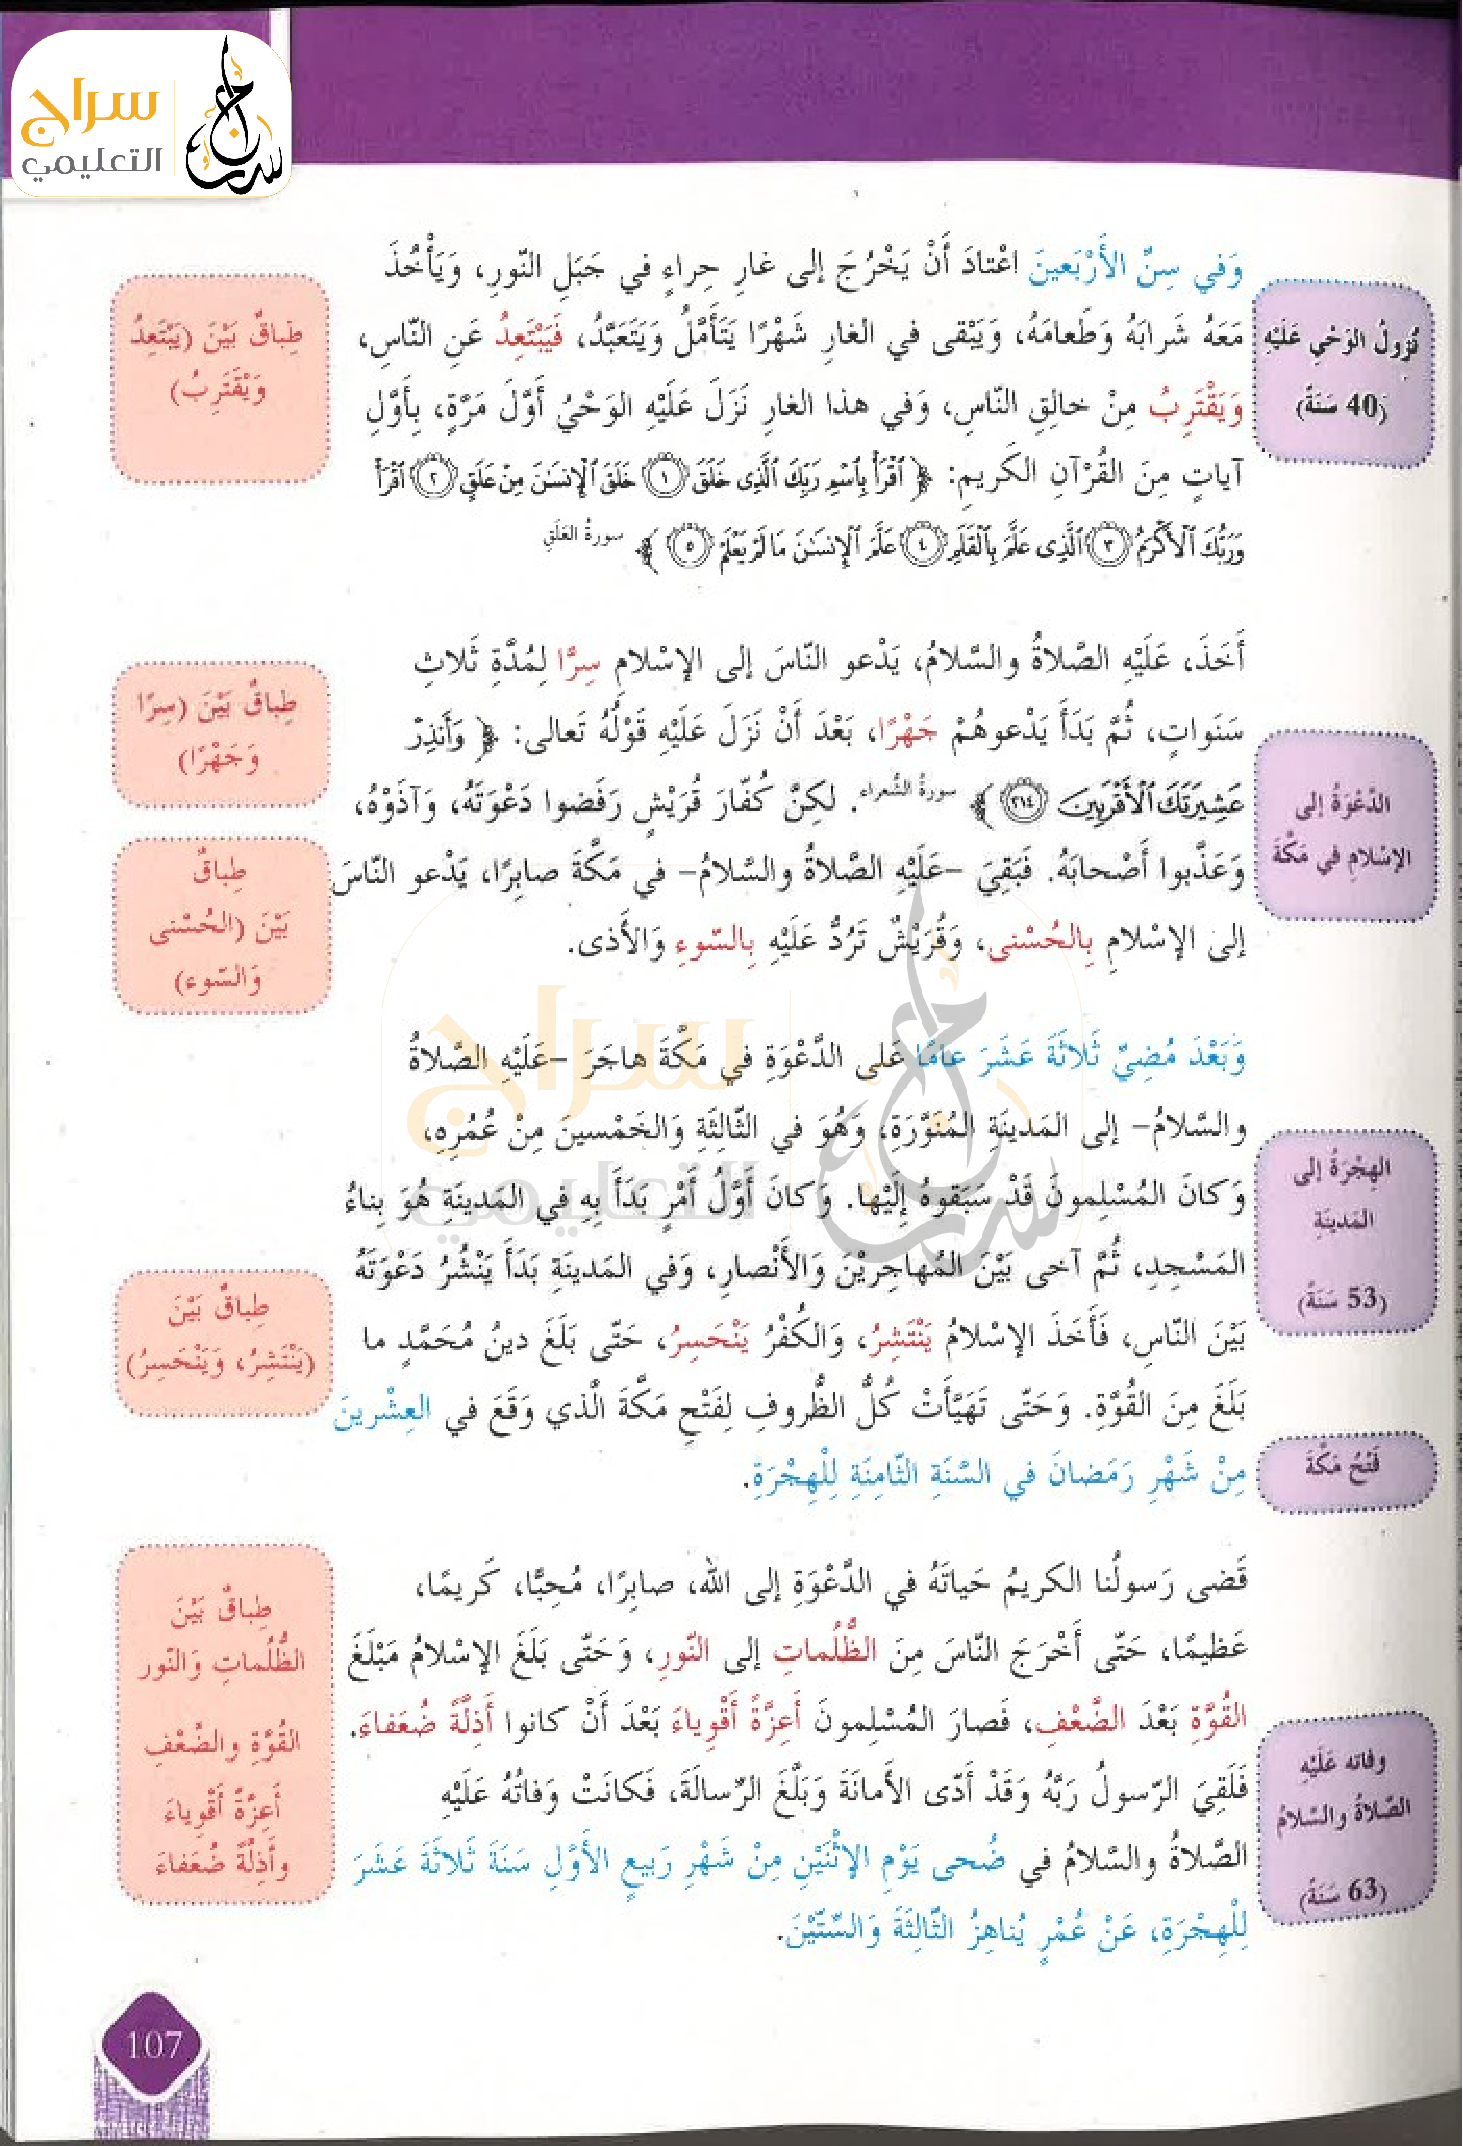 سراج
التعليمي
وَفي سِنِّ الأَرْبَعينَ اعْتادَ أَنْ يَخْرُجَ إلى غارِ حِراءٍ في جَبَلِ النّورِ، وَيَأْخُذَ
مَعَهُ شَرابَهُ وَطَعامَهُ، وَيَبْقى في الغارِ شَهْرًا يَتَأَمَّلُ وَيَتَعَبَّدُ، فَيَبْتَعِدُ عَنِ النّاسِ،
وَيَقْتَرِبُ مِنْ خالِقِ النّاسِ، وَفي هذا الغارِ نَزَلَ عَلَيْهِ الوَحْيُ أَوَّلَ مَرَّةٍ، بِأَوَّلِ
آياتٍ مِنَ القُرْآنِ الكَريمِ: ﴿ ٱقْرَأْ بِٱسْمِ رَبِّكَ ٱلَّذِى خَلَقَ ١ خَلَقَ ٱلْإِنسَٰنَ مِنْ عَلَقٍ ٢ ٱقْرَأْ
وَرَبُّكَ ٱلْأَكْرَمُ ٣ ٱلَّذِى عَلَّمَ بِٱلْقَلَمِ ٤ عَلَّمَ ٱلْإِنسَٰنَ مَا لَمْ يَعْلَمْ ٥ ﴾ سورةُ العَلَقِ
نُزولُ الوَحْيِ عَلَيْهِ
(40 سَنَةً)
طِباقٌ بَيْنَ (يَبْتَعِدُ
وَيَقْتَرِبُ)
أَخَذَ، عَلَيْهِ الصَّلاةُ والسَّلامُ، يَدْعو النّاسَ إلى الإسْلامِ سِرًّا لِمُدَّةِ ثَلاثِ
سَنَواتٍ، ثُمَّ بَدَأَ يَدْعوهُمْ جَهْرًا، بَعْدَ أَنْ نَزَلَ عَلَيْهِ قَوْلُهُ تَعالى: ﴿ وَأَنذِرْ
عَشِيرَتَكَ ٱلْأَقْرَبِينَ ٢١٤ ﴾ سورةُ الشُّعراء. لكِنَّ كُفّارَ قُرَيْشٍ رَفَضوا دَعْوَتَهُ، وَآذَوْهُ،
وَعَذَّبوا أَصْحابَهُ. فَبَقِيَ -عَلَيْهِ الصَّلاةُ والسَّلامُ- في مَكَّةَ صابِرًا، يَدْعو النّاسَ
إلى الإسْلامِ بِالحُسْنى، وَقُرَيْشٌ تَرُدُّ عَلَيْهِ بِالسّوءِ وَالأَذى.
الدَّعْوَةُ إلى
الإسْلامِ في مَكَّةَ
طِباقٌ بَيْنَ (سِرًّا
وَجَهْرًا)
طِباقٌ
بَيْنَ (الحُسْنى
وَالسّوء)
وَبَعْدَ مُضِيِّ ثَلاثَةَ عَشَرَ عامًا عَلى الدَّعْوَةِ في مَكَّةَ هاجَرَ -عَلَيْهِ الصَّلاةُ
والسَّلامُ- إلى المَدينَةِ المُنَوَّرَةِ، وَهُوَ في الثّالِثَةِ وَالخَمْسينَ مِنْ عُمُرِهِ،
وَكانَ المُسْلِمونَ قَدْ سَبَقوهُ إلَيْها. وَكانَ أَوَّلُ أَمْرٍ بَدَأَ بِهِ في المَدينَةِ هُوَ بِناءُ
المَسْجِدِ، ثُمَّ آخى بَيْنَ المُهاجِرِيْنَ وَالأَنْصارِ، وَفي المَدينَةِ بَدَأَ يَنْشُرُ دَعْوَتَهُ
بَيْنَ النّاسِ، فَأَخَذَ الإسْلامُ يَنْتَشِرُ، وَالكُفْرُ يَنْحَسِرُ، حَتّى بَلَغَ دينُ مُحَمَّدٍ ما
بَلَغَ مِنَ القُوَّةِ. وَحَتّى تَهَيَّأَتْ كُلُّ الظُّروفِ لِفَتْحِ مَكَّةَ الَّذي وَقَعَ في العِشْرينَ
مِنْ شَهْرِ رَمَضانَ في السَّنَةِ الثّامِنَةِ لِلْهِجْرَةِ.
الهِجْرَةُ إلى
المَدينَةِ
(53 سَنَةً)
طِباقٌ بَيْنَ
(يَنْتَشِرُ، وَيَنْحَسِرُ)
فَتْحُ مَكَّةَ
قَضى رَسولُنا الكَريمُ حَياتَهُ في الدَّعْوَةِ إلى الله، صابِرًا، مُحِبًّا، كَريمًا،
عَظيمًا، حَتّى أَخْرَجَ النّاسَ مِنَ الظُّلُماتِ إلى النّورِ، وَحَتّى بَلَغَ الإسْلامُ مَبْلَغَ
القُوَّةِ بَعْدَ الضَّعْفِ، فَصارَ المُسْلِمونَ أَعِزَّةً أَقْوِياءَ بَعْدَ أَنْ كانوا أَذِلَّةً ضُعَفاءَ.
فَلَقِيَ الرّسولُ رَبَّهُ وَقَدْ أَدّى الأَمانَةَ وَبَلَّغَ الرِّسالَةَ، فَكانَتْ وَفاتُهُ عَلَيْهِ
الصَّلاةُ والسَّلامُ في ضُحى يَوْمِ الإثْنَيْنِ مِنْ شَهْرِ رَبيعٍ الأَوَّلِ سَنَةَ ثَلاثَةَ عَشَرَ
لِلْهِجْرَةِ، عَنْ عُمْرٍ يُناهِزُ الثّالِثَةَ وَالسِّتّيْنَ.
وفاته عَلَيْهِ
الصَّلاةُ والسَّلامُ
(63 سَنَةً)
طِباقٌ بَيْنَ
الظُّلُماتِ وَالنّور
القُوَّةِ والضَّعْفِ
أَعِزَّةً أَقْوِياءَ
وأَذِلَّةً ضُعَفاءَ
107